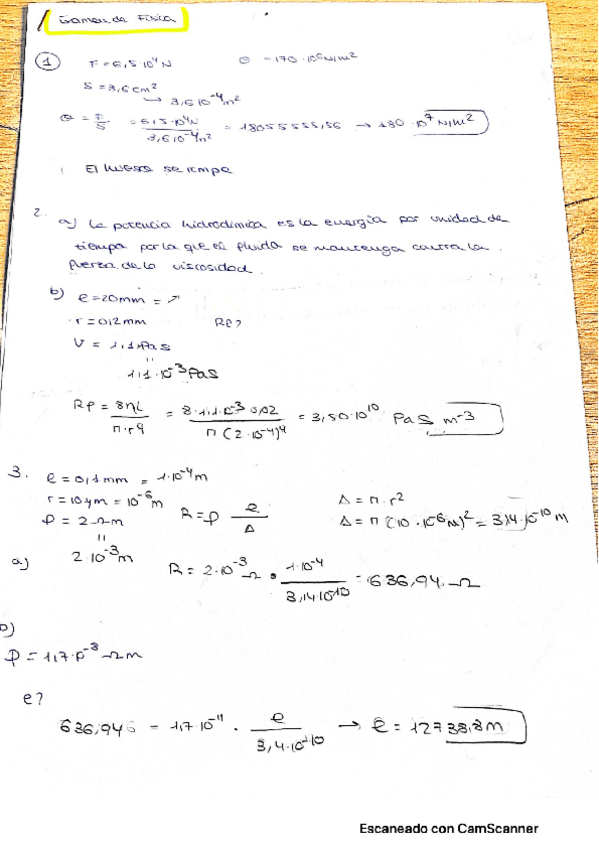 Examen de Física
1 F = 6,5·10⁴N Θ = 170·10⁶N/m²
S = 3,6cm²
→ 3,6·10⁻⁴m²
Θ = F/S = 6,5·10⁴N / 3,6·10⁻⁴m² = 180555555,56 → 180·10⁷ N/m²
El hueso se rompe
2.
a) La potencia hidrodinámica es la energía por unidad de
tiempo por la que el fluido se mantenga contra la
fuerza de la viscosidad.
b) e = 20mm =
r = 0,2mm Re?
V = 1,1 mPas
1,1·10⁻³ Pas
RP = 8ηL / π·r⁴ = 8·1,1·10⁻³·0,02 / π(2·10⁻⁴)⁴ = 3,50·10¹⁰ Pas m⁻³
3. e = 0,1mm = 1·10⁻⁴m
r = 10µm = 10⁻⁶m R = ρ e/A A = π·r²
ρ = 2Ωm A = π(10·10⁻⁶m)² = 3,14·10⁻¹⁰m
a) 2·10⁻³m R = 2·10⁻³Ω · 1·10⁻⁴ / 3,14·10⁻¹⁰ = 636,94 Ω
b)
ρ = 1,7·10⁻⁸ Ωm
e?
636,946 = 1,7·10⁻¹¹ · e / 3,4·10⁻¹⁰ → e = 12738,8m
Escaneado con CamScanner